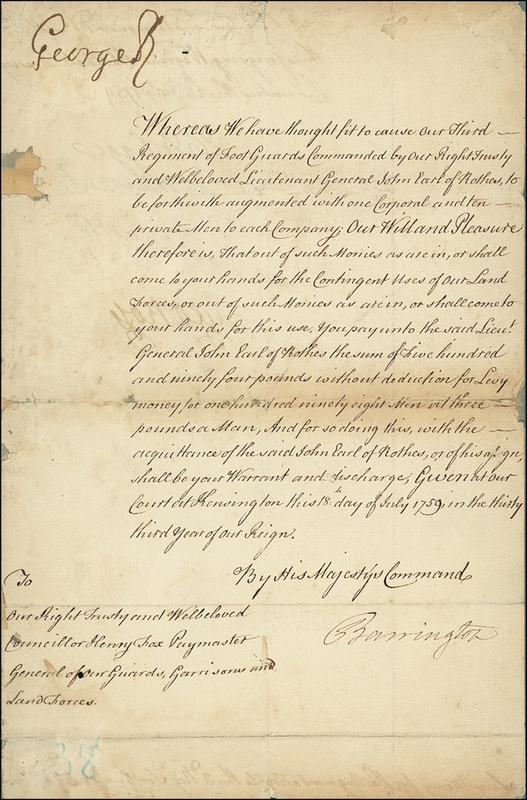 George R
Whereas We have thought fit to cause our Third
Regiment of Foot Guards Commanded by Our Right Trusty
and Welbeloved Lieutenant General John Earl of Rothes, to
be forthwith augmented with one Corporal and ten
private Men to each Company; Our Will and Pleasure
therefore is, That out of such Monies as are in, or shall
come to your hands for the Contingent Uses of Our Land
Forces, or out of such Monies as are in, or shall come to
your hands for this use, You pay unto the said Lieut.
General John Earl of Rothes the sum of Five hundred
and ninety four pounds without deduction for Levy
money for one hundred ninety eight Men at three
pounds a Man, And for so doing this, with the
acquittance of the said John Earl of Rothes, or of his
shall be your Warrant and discharge; Given at our
Court at Kensington this 18th day of July 1759, in the thirty
third Year of Our Reign.
By His Majestys Command
Barrington
To
Our Right Trusty and Welbeloved
Councillor Henry Fox Paymaster
General of our Guards, Garrisons and
Land Forces.